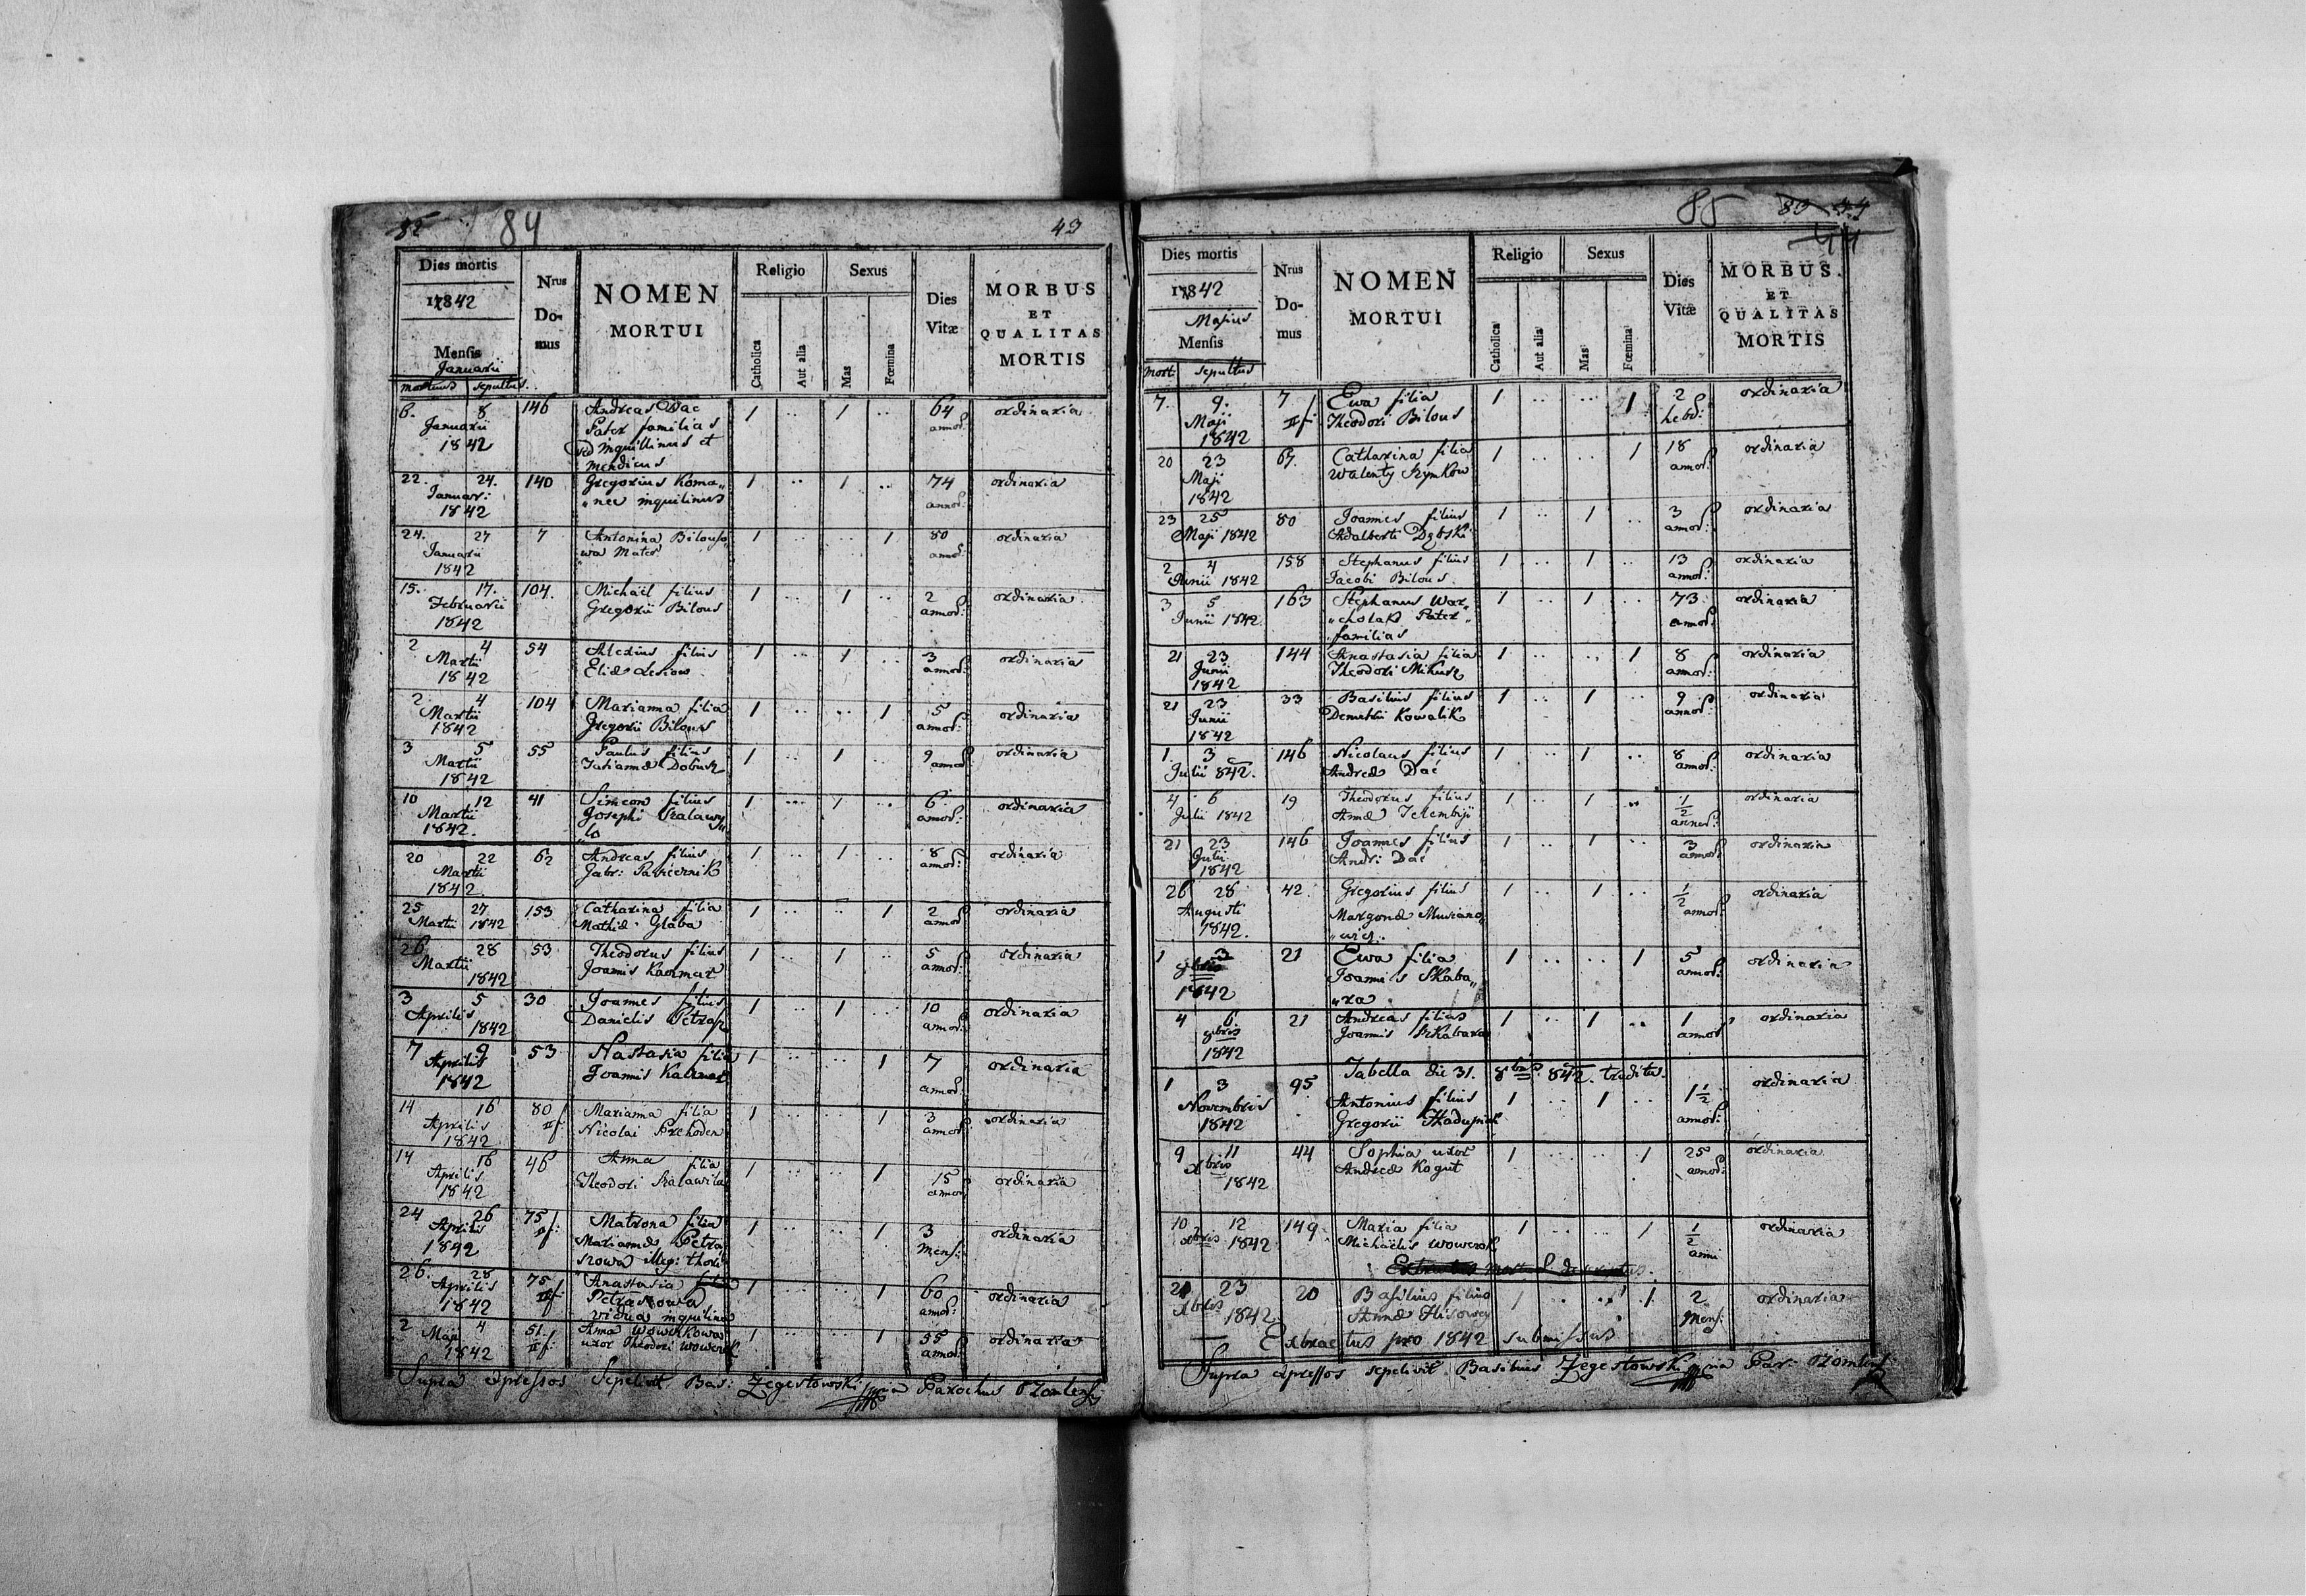 82 84 43
Dies mortis
1842
Mensis
Januarii
mortuus sepultus
Nrus Do-mus
NOMEN
MORTUI
Religio
Catholica
Aut alia
Sexus
Mas
Fœmina
Dies Vitæ
MORBUS
ET
QUALITAS
MORTIS
6. 8 146 Andreas Dac 1 .. 1 .. 64 ordinaria
Januarii Pater familias annor:
1842 sed inquillinus et
mendicus
22. 24. 140 Gregorius Koma„ 1 .. 1 .. 74 ordinaria
Januar: „nec inquilinus annor:
1842
24. 27 7 Antonina Bilouso„ 1 .. .. 1 80 ordinaria
Januarii „wa Mater annor:
1842
15. 17. 104. Michäil filius 1 .. 1 .. 2 ordinaria
Februarii Gregorii Bilous annor:
1842
2 4 54 Alexius filius 1 .. 1 .. 3 ordinaria
Martii Eliæ Lesiow annor:
1842
2. 4 104 Marianna filia 1 .. .. 1 5 ordinaria
Martii Gregorii Bilous annor:
1842
3 5 55 Paulus filius 1 .. 1 .. 9 ordinaria
Martii Tatiannæ Dobusz annor:
1842
10 12 41 Simeon filius 1 ... 1 .. 6 ordinaria
Martii Josephi annor:
1842.
20 22 62 Andreas filius 1 .. 1 .. 8 ordinaria
Martii Gabr: annor:
1842.
25 27 153 Catharina filia 1 .. .. 1 2 ordinaria
Martii 1842 Mathiæ Głąba annor:
26 28 53 Theodorus filius 1 .. 1 .. 5 ordinaria
Martii Joannis Kaczmar annor:
1842
3 5 30 Joannes filius 1 .. 1 .. 10 ordinaria
Aprilis Danielis Petrasz annor:
1842
7 9 53 Nastasia filia 1 .. .. 1 7 ordinaria
Aprilis Joannis annor:
1842
14 16 80 Marianna filia 1 .. .. 1 3 ordinaria
Aprilis Nicolai annor:
1842
14 16 46 Anna filia 1 .. .. 1 15 ordinaria
Aprilis Theodori annor:
1842
24 26 75 Matrona filia 1 .. .. 1 3 ordinaria
Aprilis Mariannæ Petra„ Mens:
1842 szowa illeg: thori
26. 28 75 Anastasia 1 .. .. 1 60 ordinaria
Aprilis Petraszowa annor:
1842 vidua inquilina
2 4 51. Anna 1 .. .. 1 55 ordinaria
Maji 1842 uxor Theodori annor:
Supra expressos Sepelivit Bas: Żegestowski mp Parochus
85 83 44
44
Dies mortis
1842
Majus
Mensis
mort. sepultus
Nrus Do-mus
NOMEN
MORTUI
Religio
Catholica
Aut alia
Sexus
Mas
Fœmina
Dies Vitæ
MORBUS.
ET
QUALITAS
MORTIS
7. 9. 7 Ewa filia 1 .. ... 1 2 ordinaria
Maji Theodori Bilous hebd:
1842
20 23 67. Catharina filia 1 .. .. 1 18 ordinaria
Maji Walenty Szymkow annor:
1842
23 25 80 Joannes filius 1 .. 1 .. 3 ordinaria
Maji 1842 Adalberti Dębski annor:
2 4 158 Stephanus filius 1 .. 1 .. 13 ordinaria
Junii 1842 Jacobi Bilous. annor:
3 5 163 Stephanus War„ 1 .. 1 .. 73 ordinaria
Junii 1842 „cholak Pater„ annor:
„familias
21 23 144 Anastasia filia 1 .. .. 1 8 ordinaria
Junii Theodori Mikusz annor:
1842
21 23 33 Basilius filius 1 .. 1 .. 9 ordinaria
Junii Demetrii Kowalik annor:
1842
1. 3 146 Nicolaus filius 1 .. 1 .. 8 ordinaria
Julii 842. Andreæ Dać annor:
4 6 19 Theodorus filius 1 .. 1 .. 1/2 ordinaria
Julii 1842 Annæ annor:
21 23 146 Joannes filius 1 .. 1 .. 3 ordinaria
Julii Andr: Dać annor:
1842
26 28 42 Gregorius filius 1 .. 1 .. 1/2 ordinaria
Augusti annor:
1842.
1 3 21 Ewa filia 1 .. .. 1 5 ordinaria
8bris Joannis Skaba„ annor:
1842 „ra
4 6 21 Andreas filius 1 .. 1 .. 1 ordinaria
8bris Joannis Szkabara annor:
1842
Tabella die 31. 8bris 842. tradita.
1 3 95 Antonius filius 1 .. 1 .. 1 1/2 ordinaria
Novembris Gregorii annor:
1842
9 11 44 Sophia uxor 1 .. .. 1 25 ordinaria
Xbris Andreæ Kogut annor:
1842
10 12 149 Maria filia 1 .. .. 1 1/2 ordinaria
Xbris 1842 Michäelis anni
21 23 20 Basilius filius 1 .. .. 1. 2 ordinaria
Xbris Annæ Mens:
1842.
Extractus pro 1842 submissus
Supra expressos sepelivit Basilius Żegestowski mp Par: